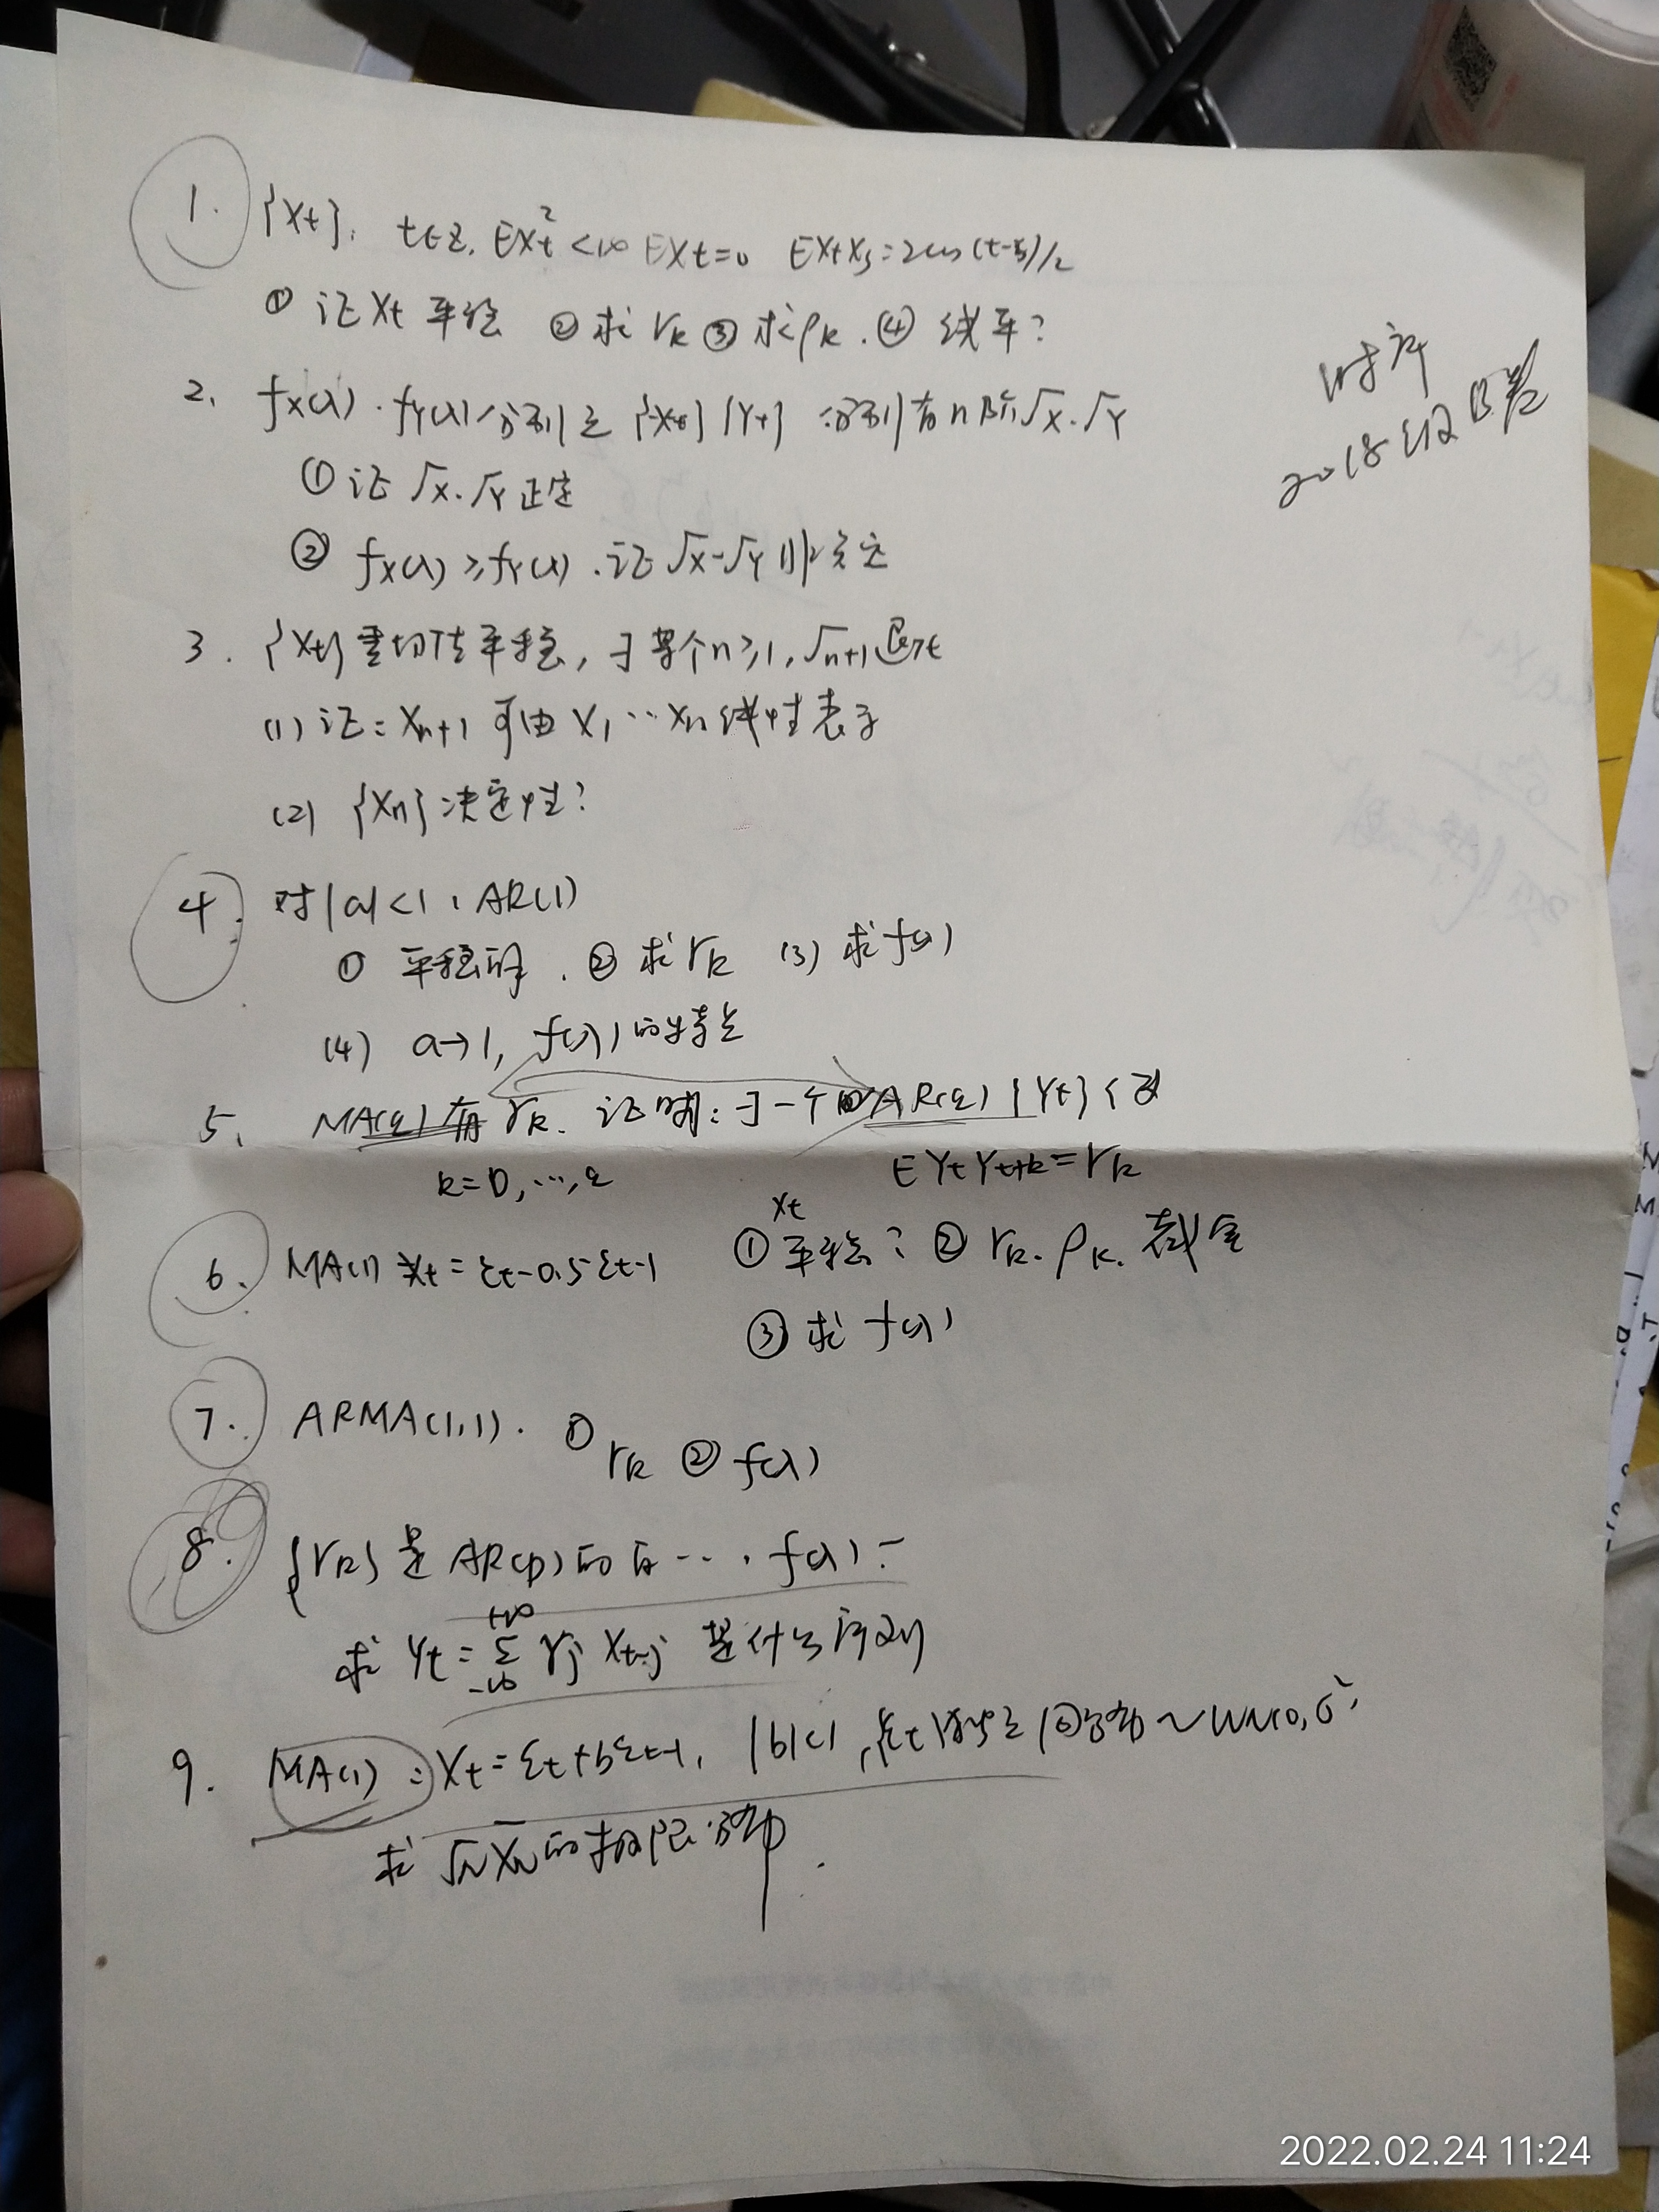 1. {Xt}, t∈Z, EXt²<∞ EXt=0 EXtXs=2cos(t-s)/2
① 证Xt平稳 ②求γk ③求ρk. ④线平?
时序
2018级B卷
2. fx(λ). fY(λ)分别是{Xt}{Yt} 分别有n阶Γx.ΓY
①证Γx.ΓY正定
② fx(λ)≥fY(λ).证Γx-ΓY非负定
3. {Xt}零均值平稳,于某个n≥1,Γn+1退化
(1)证:Xn+1可由X1…Xn线性表示
(2) {Xn}决定性?
4. 对|a|<1, AR(1)
① 平稳解. ②求γk (3)求f(λ)
(4) a→1, f(λ)的特点
5. MA(q)有γk. 证明:于一个AR(q){Yt}
k=0,…,q EYtYt+k=γk
6. MA(1) Xt=εt-0.5εt-1 ① Xt平稳? ②γk.ρk.截尾
③求f(λ)
7. ARMA(1,1). ①γk ②f(λ)
8. {γk}是AR(p)的自…. f(λ)=
求Yt=Σ+∞-∞ γjXt-j 是什么序列
9. MA(1): Xt=εt+bεt-1, |b|<1, {εt}独立同分布~WN(0,σ²)
求√N X̄N的极限分布.
2022.02.24 11:24